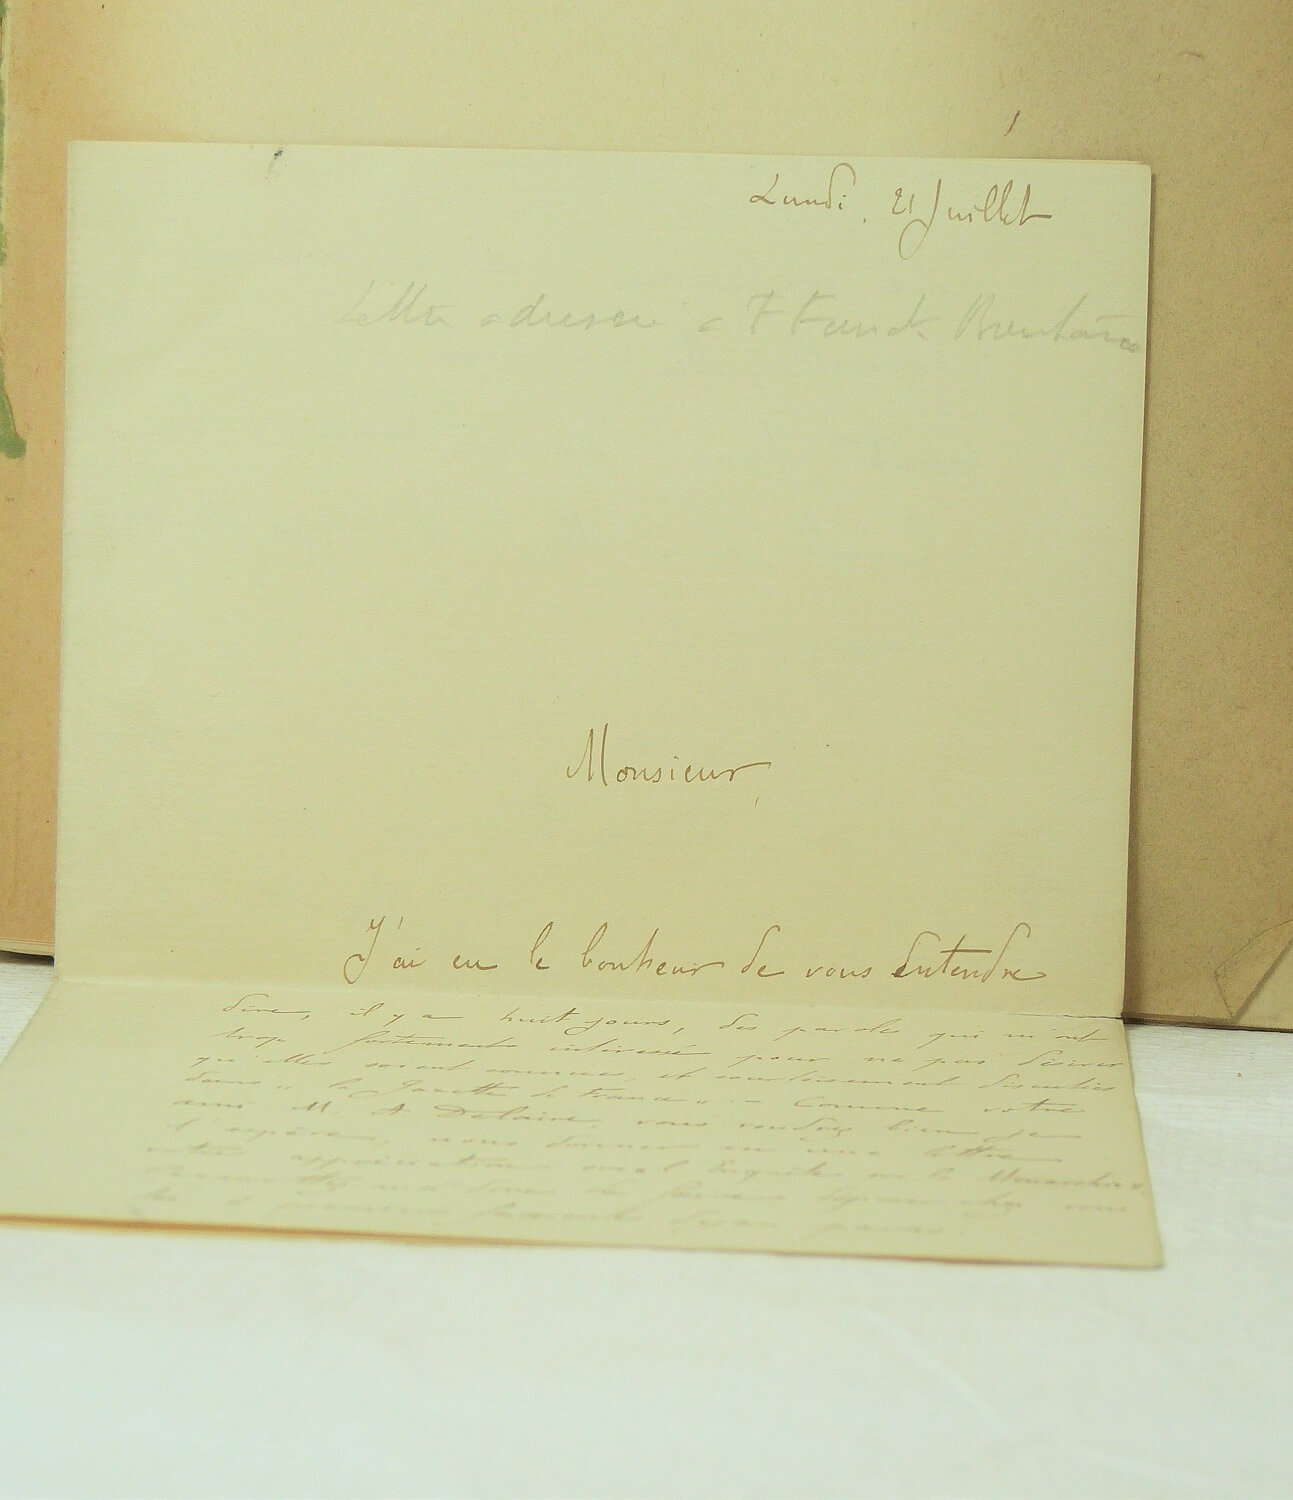 Lundi, 21 Juillet
Lettre adressée à F Funck Brentano
Monsieur,
J'ai eu le bonheur de vous entendre
dire, il y a huit jours, des paroles qui m'ont
trop fortement intéressé pour ne pas désirer
qu'elles soient connues, et courtoisement discutées
dans "la Gazette de France". - Comme votre
ami M. A Delaire, vous voudrez bien je
l'espère, nous donner en une lettre
votre appréciation sur l'Enquête sur la Monarchie.